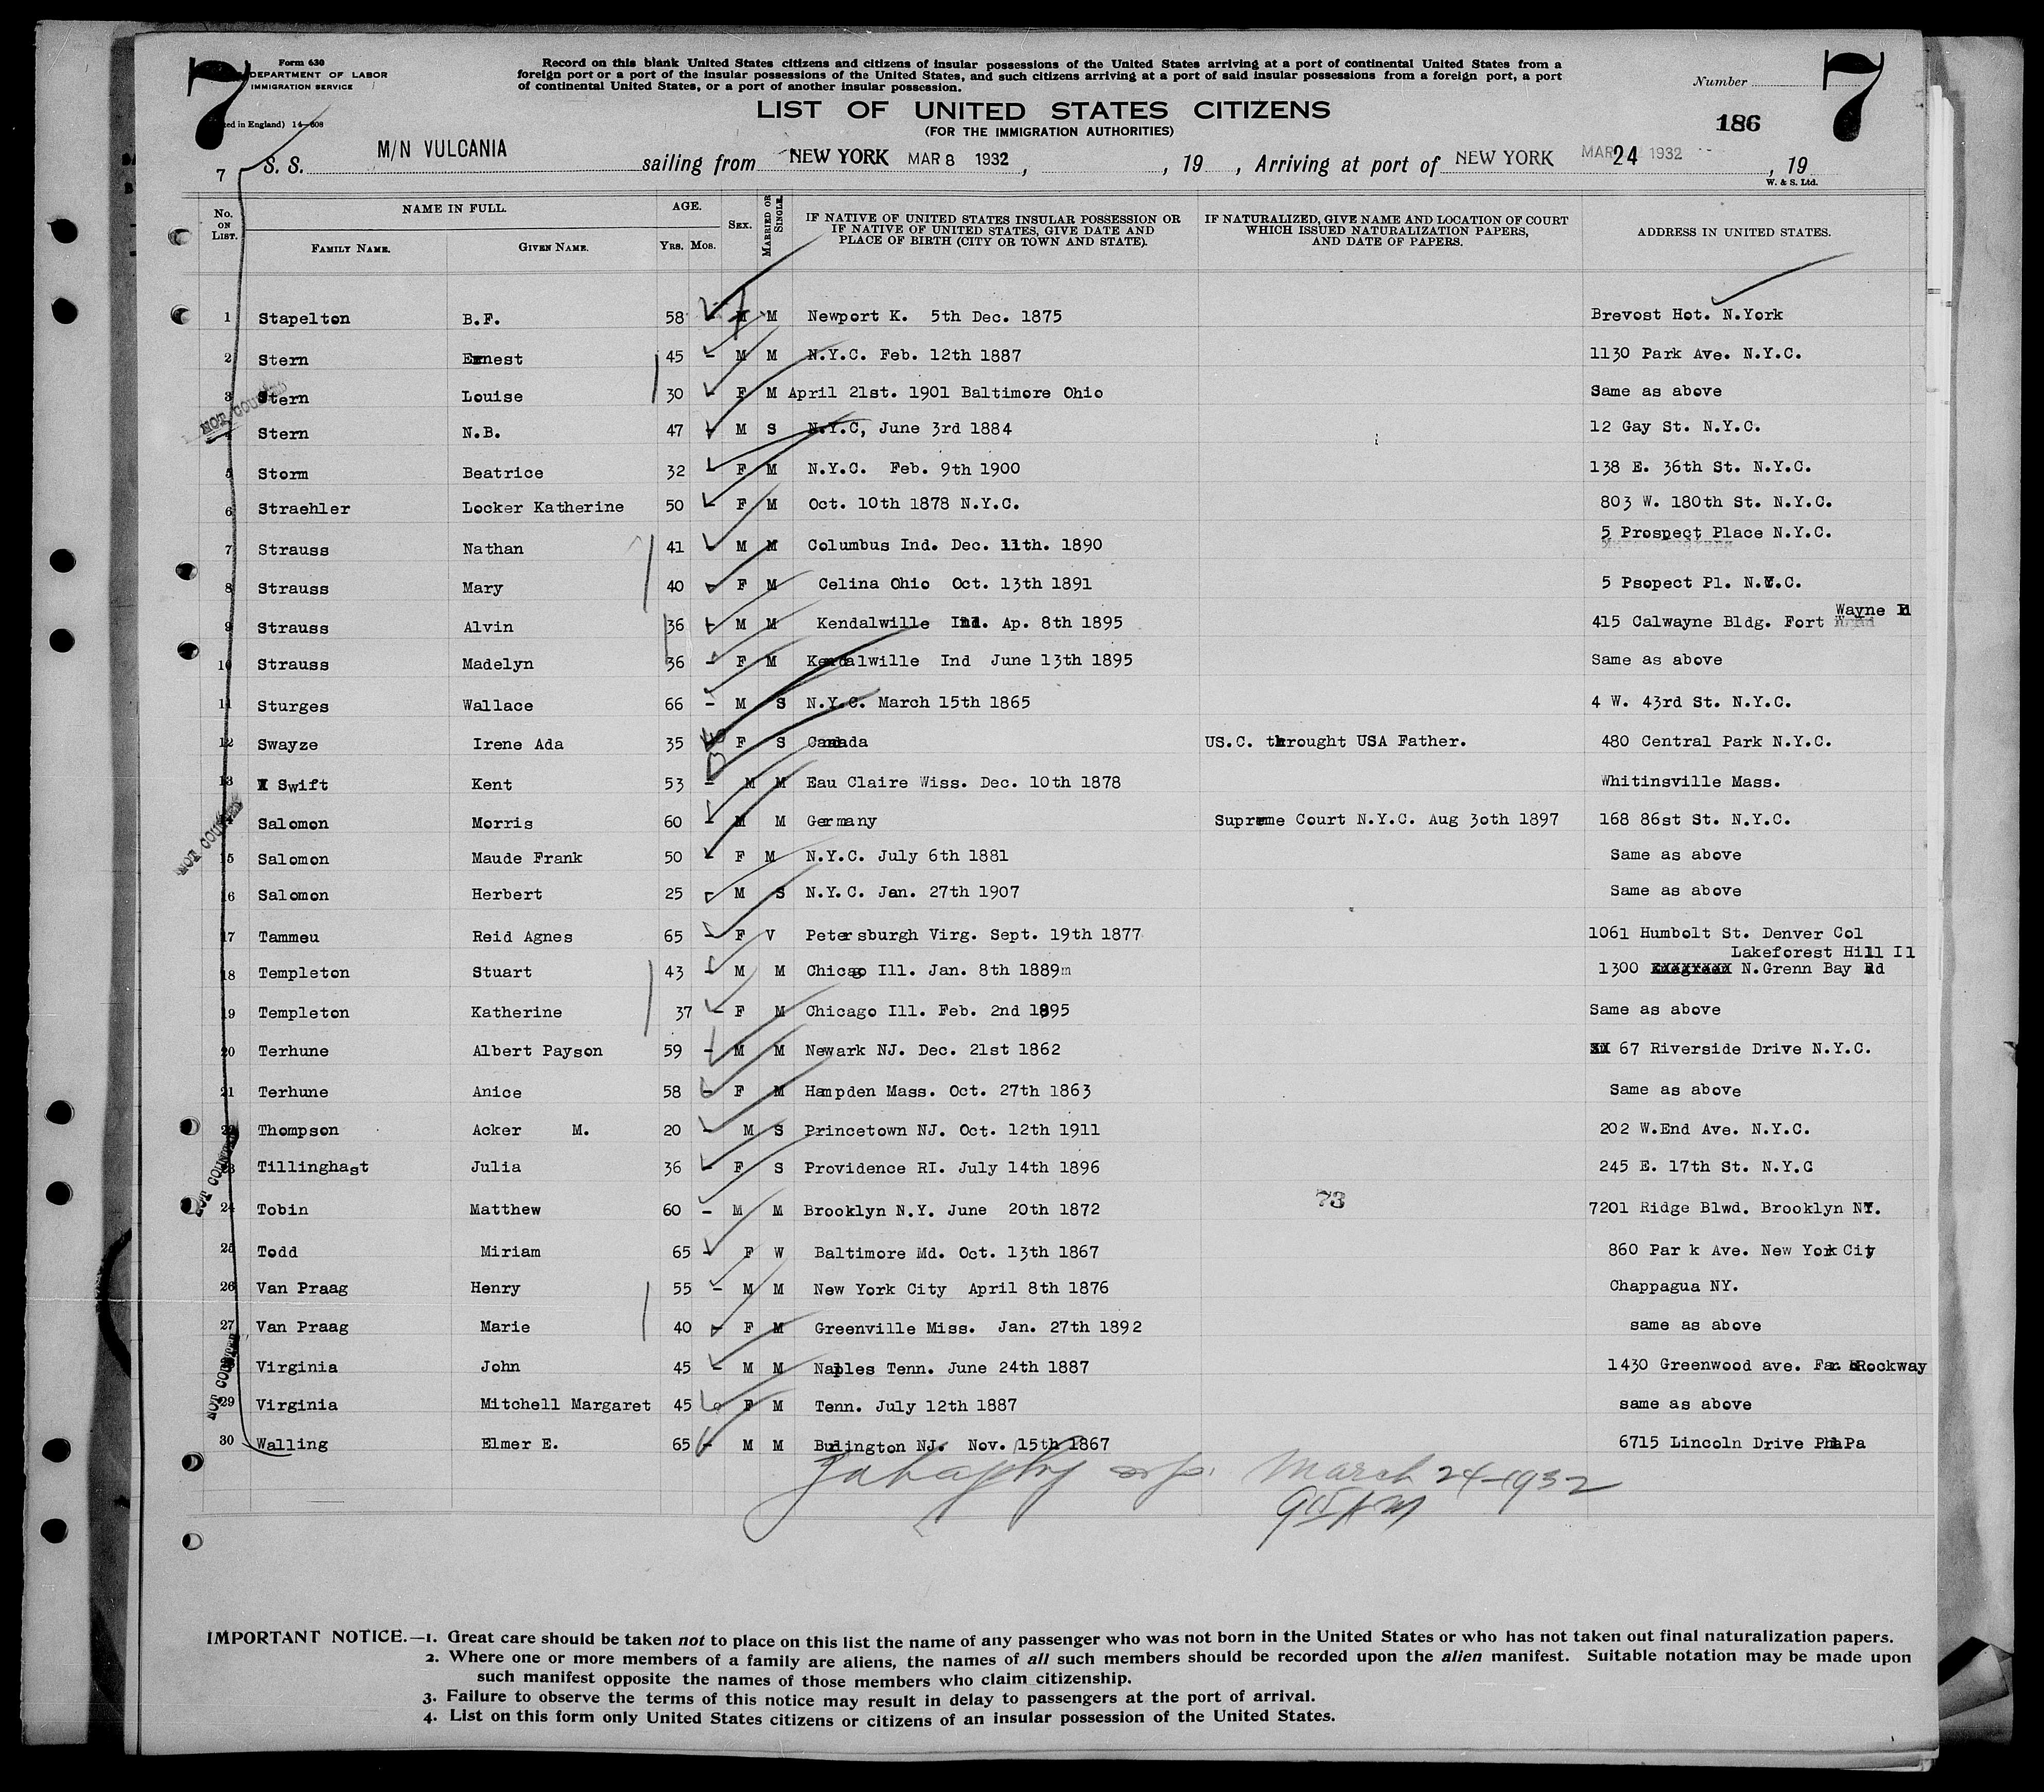 7
Form 630
DEPARTMENT OF LABOR
IMMIGRATION SERVICE
ed in England) 14—608
Record on this blank United States citizens and citizens of insular possessions of the United States arriving at a port of continental United States from a
foreign port or a port of the insular possessions of the United States, and such citizens arriving at a port of said insular possessions from a foreign port, a port
of continental United States, or a port of another insular possession.
LIST OF UNITED STATES CITIZENS
(FOR THE IMMIGRATION AUTHORITIES)
Number
7
186
7 S. S. M/N VULCANIA sailing from NEW YORK MAR 8 1932, , 19 , Arriving at port of NEW YORK MAR 24 1932 , 19
W. & S. Ltd.
No. ON LIST. NAME IN FULL. FAMILY NAME. GIVEN NAME. AGE. YRS. MOS. SEX. MARRIED OR SINGLE. IF NATIVE OF UNITED STATES INSULAR POSSESSION OR IF NATIVE OF UNITED STATES, GIVE DATE AND PLACE OF BIRTH (CITY OR TOWN AND STATE). IF NATURALIZED, GIVE NAME AND LOCATION OF COURT WHICH ISSUED NATURALIZATION PAPERS, AND DATE OF PAPERS. ADDRESS IN UNITED STATES.
1 Stapelton B.F. 58 - M M Newport K. 5th Dec. 1875 Brevost Hot. N.York
2 Stern Ernest 45 - M M N.Y.C. Feb. 12th 1887 1130 Park Ave. N.Y.C.
3 Stern Louise 30 F M April 21st. 1901 Baltimore Ohio Same as above
NOT COUNTED
4 Stern N.B. 47 - M S N.Y.C, June 3rd 1884 12 Gay St. N.Y.C.
5 Storm Beatrice 32 - F M N.Y.C. Feb. 9th 1900 138 E. 36th St. N.Y.C.
6 Straehler Locker Katherine 50 - F M Oct. 10th 1878 N.Y.C. 803 W. 180th St. N.Y.C.
7 Strauss Nathan 41 - M M Columbus Ind. Dec. 11th. 1890 5 Prospect Place N.Y.C.
8 Strauss Mary 40 - F M Celina Ohio Oct. 13th 1891 5 Psopect Pl. N.Y.C.
9 Strauss Alvin 36 - M M Kendalwille Ind. Ap. 8th 1895 415 Calwayne Bldg. Fort Wayne Id
10 Strauss Madelyn 36 - F M Kendalwille Ind June 13th 1895 Same as above
11 Sturges Wallace 66 - M S N.Y.C. March 15th 1865 4 W. 43rd St. N.Y.C.
12 Swayze Irene Ada 35 F S Canada US.C. throught USA Father. 480 Central Park N.Y.C.
13 Swift Kent 53 - M M Eau Claire Wiss. Dec. 10th 1878 Whitinsville Mass.
NOT COUNTED
14 Salomon Morris 60 - M M Germany Supreme Court N.Y.C. Aug 30th 1897 168 86st St. N.Y.C.
15 Salomon Maude Frank 50 - F M N.Y.C. July 6th 1881 Same as above
16 Salomon Herbert 25 - M S N.Y.C. Jan. 27th 1907 Same as above
17 Tammeu Reid Agnes 65 - F V Petersburgh Virg. Sept. 19th 1877 1061 Humbolt St. Denver Col
18 Templeton Stuart 43 - M M Chicago Ill. Jan. 8th 1889m Lakeforest Hill Il 1300 N.Grenn Bay Rd
19 Templeton Katherine 37 - F M Chicago Ill. Feb. 2nd 1895 Same as above
20 Terhune Albert Payson 59 - M M Newark NJ. Dec. 21st 1862 67 Riverside Drive N.Y.C.
21 Terhune Anice 58 - F M Hampden Mass. Oct. 27th 1863 Same as above
22 Thompson Acker M. 20 - M S Princetown NJ. Oct. 12th 1911 202 W.End Ave. N.Y.C.
NOT COUNTED
23 Tillinghast Julia 36 - F S Providence RI. July 14th 1896 245 E. 17th St. N.Y.C
24 Tobin Matthew 60 - M M Brooklyn N.Y. June 20th 1872 73 7201 Ridge Blwd. Brooklyn NY.
25 Todd Miriam 65 - F W Baltimore Md. Oct. 13th 1867 860 Par k Ave. New York City
26 Van Praag Henry 55 - M M New York City April 8th 1876 Chappagua NY.
27 Van Praag Marie 40 - F M Greenville Miss. Jan. 27th 1892 same as above
NOT COUNTED
28 Virginia John 45 - M M Naples Tenn. June 24th 1887 1430 Greenwood ave. Far Rockway
29 Virginia Mitchell Margaret 45 F M Tenn. July 12th 1887 same as above
30 Walling Elmer E. 65 - M M Burlington NJ. Nov. 15th 1867 6715 Lincoln Drive PhlaPa
March 24-1932
9 15 AM
IMPORTANT NOTICE.—1. Great care should be taken not to place on this list the name of any passenger who was not born in the United States or who has not taken out final naturalization papers.
2. Where one or more members of a family are aliens, the names of all such members should be recorded upon the alien manifest. Suitable notation may be made upon
such manifest opposite the names of those members who claim citizenship.
3. Failure to observe the terms of this notice may result in delay to passengers at the port of arrival.
4. List on this form only United States citizens or citizens of an insular possession of the United States.